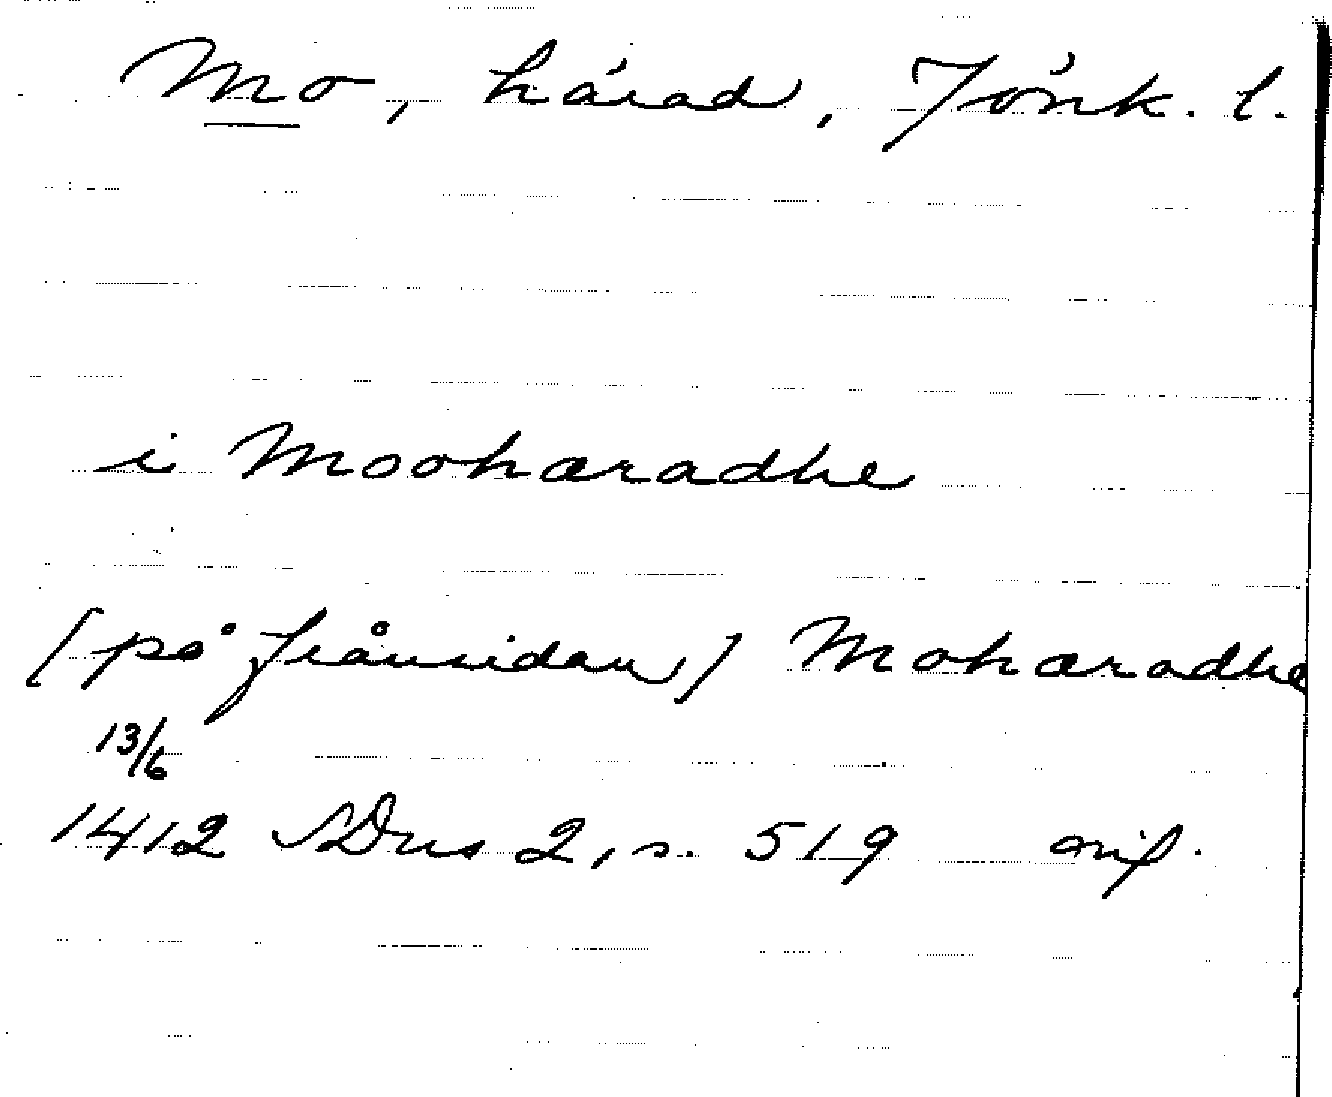 Mo, härad, Jönk. l.
i Mooharadhe
(på frånsidan) Moharadhe
13/6
1412 SDns 2, s. 519 orig.